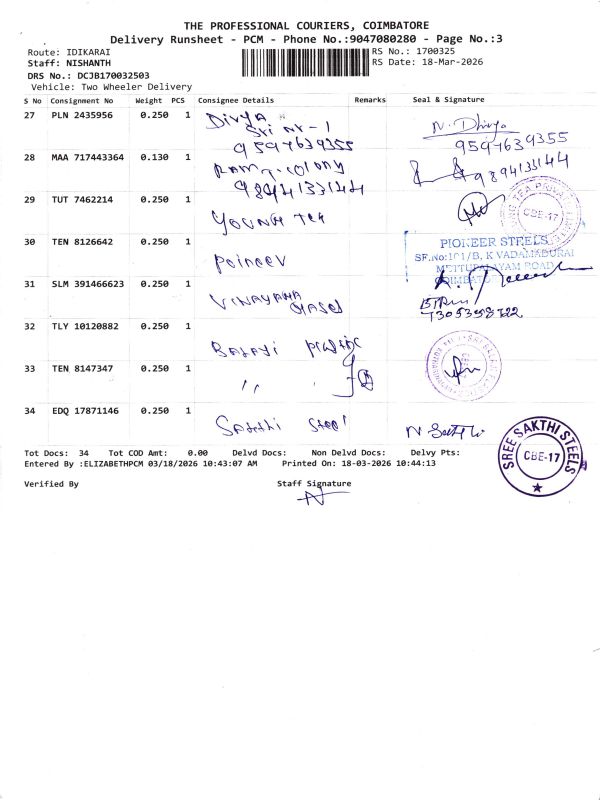 THE PROFESSIONAL COURIERS, COIMBATORE
Delivery Runsheet - PCM - Phone No.:9047080280 - Page No.:3
Route: IDIKARAI
RS No.: 1700325
Staff: NISHANTH
RS Date: 18-Mar-2026
DRS No.: DCJB170032503
Vehicle: Two Wheeler Delivery
S No Consignment No Weight PCS Consignee Details Remarks Seal & Signature
27 PLN 2435956 0.250 1 Divya N. Dhivya
9597639355 9597639355
28 MAA 717443364 0.130 1
9894133144 9894133144
29 TUT 7462214 0.250 1 Young Tea
CBE-17
30 TEN 8126642 0.250 1
PIONEER STEELS
SF.No:101/B, K VADAMADURAI
METTUPALAYAM ROAD
31 SLM 391466623 0.250 1 Vinayaga
7305398722
32 TLY 10120882 0.250 1 Balaji
33 TEN 8147347 0.250 1 " "
34 EDQ 17871146 0.250 1 Sakthi Steel
SREE SAKTHI STEELS
CBE-17
Tot Docs: 34 Tot COD Amt: 0.00 Delvd Docs: Non Delvd Docs: Delvy Pts:
Entered By :ELIZABETHPCM 03/18/2026 10:43:07 AM Printed On: 18-03-2026 10:44:13
Verified By Staff Signature